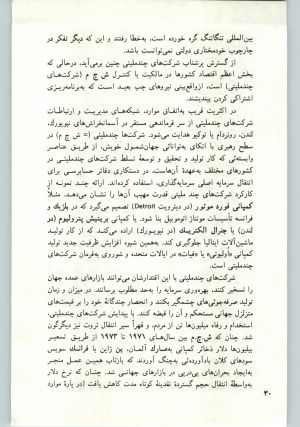 بین‌المللی تنگاتنگ گره خورده است، به‌خطا رفتند و این که دیگر تفکر در
چارچوب خودمختاری دولتی نمی‌توانست باشد.
از گسترش پرشتاب شرکت‌های چندملیتی چنین برمی‌آید، درحالی که
بخش اعظم اقتصاد کشورها در مالکیت یا کنترل ش چ م (شرکت‌های
چندملیتی) است، ازواقع‌بینی نیروهای چپ بعید است که به‌برنامه‌ریزی
اشتراکی کردن بیندیشند.
در اکثریت قریب به‌اتفاق موارد، شبکه‌های مدیریت و ارتباطات
شرکت‌های چندملیتی از سر فرماندهی مستقر در آسمانخراش‌های نیویورک،
لندن، روتردام یا توکیو هدایت می‌شود. شرکت‌های چندملیتی (= ش چ م) در
سطح رهبری با اتکای به‌توانائی جهان‌شمول خویش، از طریق عناصر
وابسته‌ئی که کار تولید و تحقیق و توسعه تسلط شرکت‌های چندملیتی در
کشورهای مختلف به‌عهدهٔ آن‌هاست، در دستکاری دفاتر حسابرسی برای
انتقال سرمایه اصلی سرمایه‌گذاری، استفاده کرده‌اند. ارائه چند نمونه از
کارکرد شرکت های چند ملیتی قدرت مهیب آنها را نشان می‌دهد. مثلاً
کمپانی فورد موتور (در دیترویت Detroit) تصمیم می‌گیرد که در بلژیک و
فرانسه تأسیسات مونتاژ اتوموبیل بنا شود. یا کمپانی بریتیش پترولیوم (در
لندن) یا جنرال الکتریک (در نیویورک) اراده می‌کند که از کار تولید
ماشین‌آلات ایتالیا جلوگیری کند. به‌همین شیوه افزایش ظرفیت جدید تولید
کمپانی «اولیوتی» یا «فیات» در ایالات متحده و شوروی به‌فرمان شرکت‌های
چندملیتی است.
شرکت‌های چندملیتی با این اقتدارشان می‌توانند بازارهای عمده جهان
را تسخیر کنند، بهره‌وری سرمایه را به‌حد مطلوب برسانند. در میزان و زمان
تولید صرفه‌جوئی‌های چشمگیر بکنند و انحصار چندگانهٔ خود را بر قیمت‌های
متزلزل جهانی مستحکم و آن را قبضه کنند. با پیدایش شرکت‌های چندملیتی،
استخدام و رفاه میلیون‌ها تن از مردم، و قهراً سیر انتقال ثروت نیز دیگرگون
شد. چنان که ش.چ.م بین سال‌های ۱۹۷۱ تا ۱۹۷۳ از طریق تسعیر
بیلیون‌ها دلار ذخائر کمپانی به‌مارک آلمان، ین ژاپن یا فرانک سویس
سودهای کلان بادآورده‌ئی به‌چنگ آوردند که بازتاب همین عمل‌کرد، به
ایجاد بحران‌های پی‌درپی در بازارهای جهانی شد. چنان که نرخ دلار
به‌واسطهٔ انتقال حجم گستردهٔ نقدینهٔ کوتاه مدت کاهش یافت (در پارهٔ موارد
۳۰